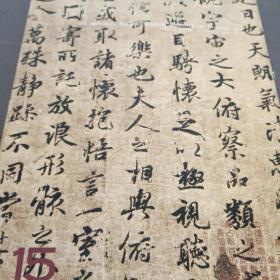 日也天朗氣
觀宇宙之大俯察品類之
遊目騁懷足以極視聽
信可樂也夫人之相與俯
或取諸懷抱悟言一室
寄所託放浪形骸之
萬殊靜躁不同當其
15